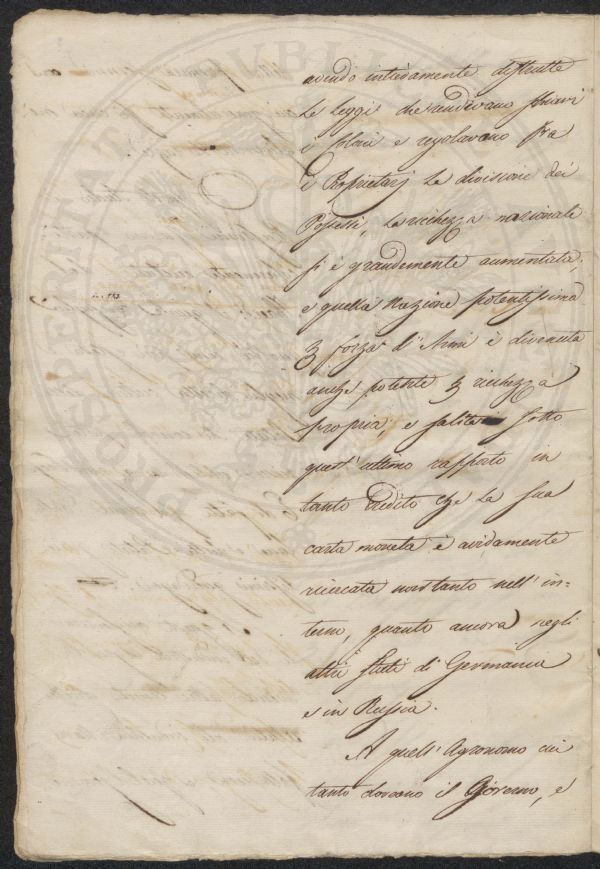 avendo intieramente distrutte
le leggi che rendevano schiavi
i coloni e regolavano fra
i Proprietarj la divisione dei
Possessi, la richezza nazionale
si è grandemente aumentata,
e quella Nazione potentissima
per forza d'Armi è divenuta
anche potente per richezza
propria, e salita sotto
quest'ultimo rapporto in
tanto credito che la sua
carta moneta è avidamente
ricercata non tanto nell'in-
terno, quanto ancora negli
altri Stati di Germania
e in Russia.
A quell'Agronomo cui
tanto dovevano il Governo, e
PROSPERITATI PUBLICAE